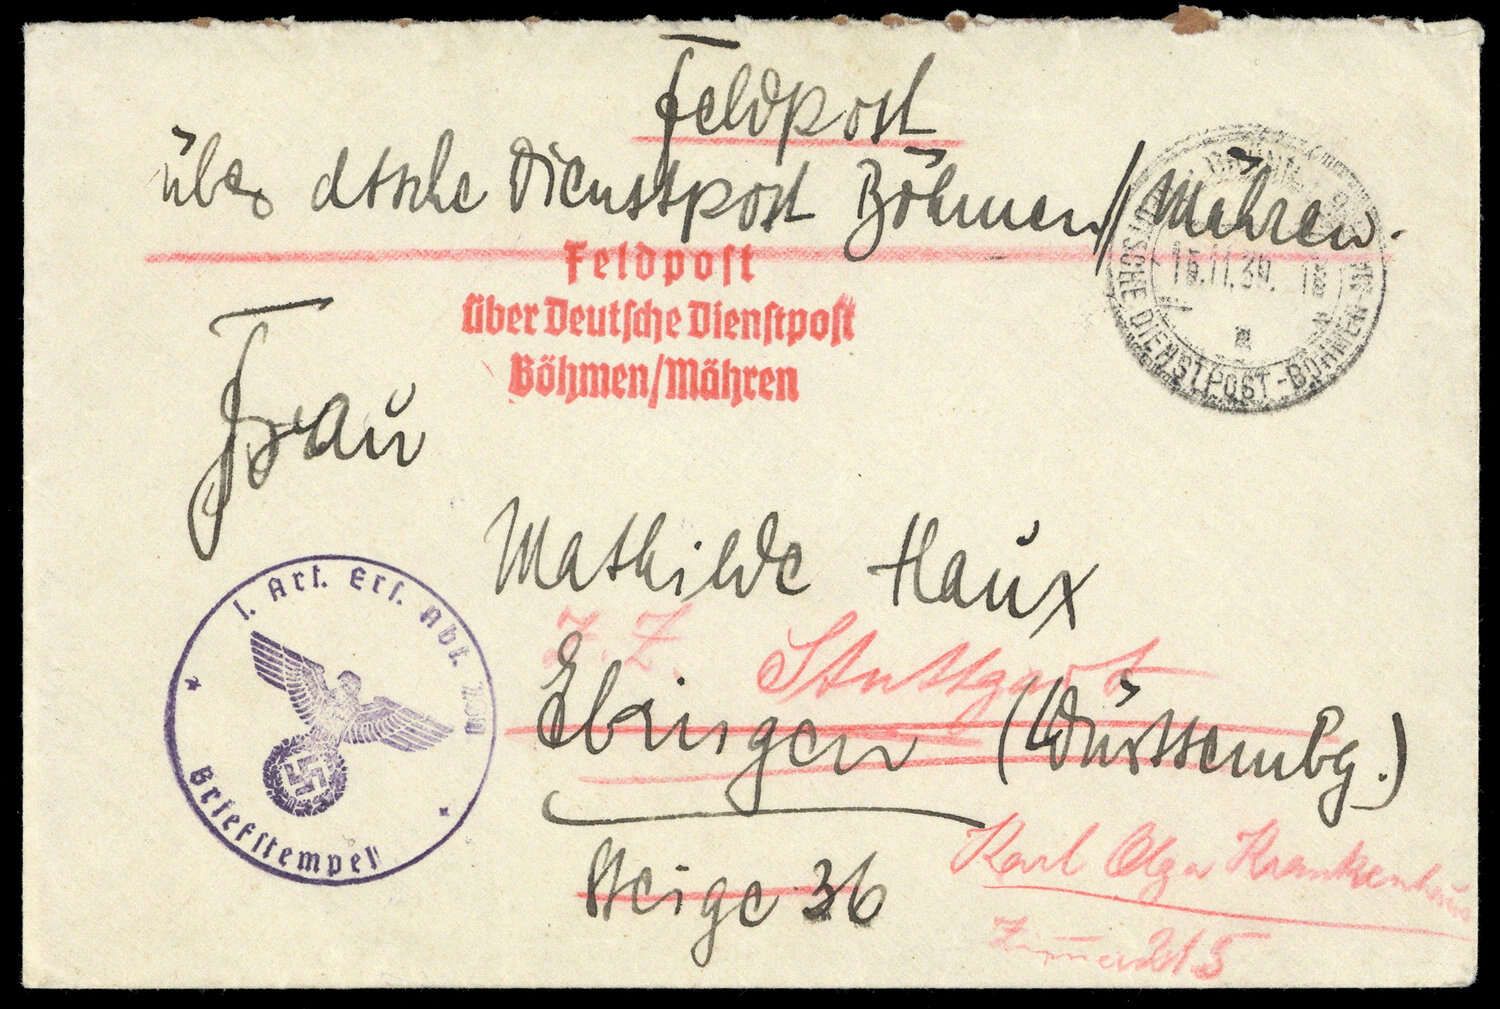 Feldpost
über dtsche Dienstpost Böhmen/Mähren.
Feldpost
über Deutsche Dienstpost
Böhmen/Mähren
DEUTSCHE DIENSTPOST-BÖHMEN-MÄHREN
.11.39.
Frau
Mathilde Haux
z. Z. Stuttgart
Ebingen (Württembg.)
Steige 36
Karl Olga Krankenhaus
Zimmer 215
I. Art. Ers. Abt.
Briefstempel